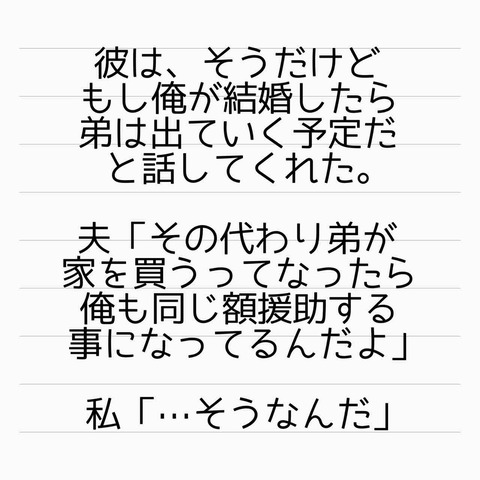 彼は、そうだけど
もし俺が結婚したら
弟は出ていく予定だ
と話してくれた。
夫「その代わり弟が
家を買うってなったら
俺も同じ額援助する
事になってるんだよ」
私「…そうなんだ」